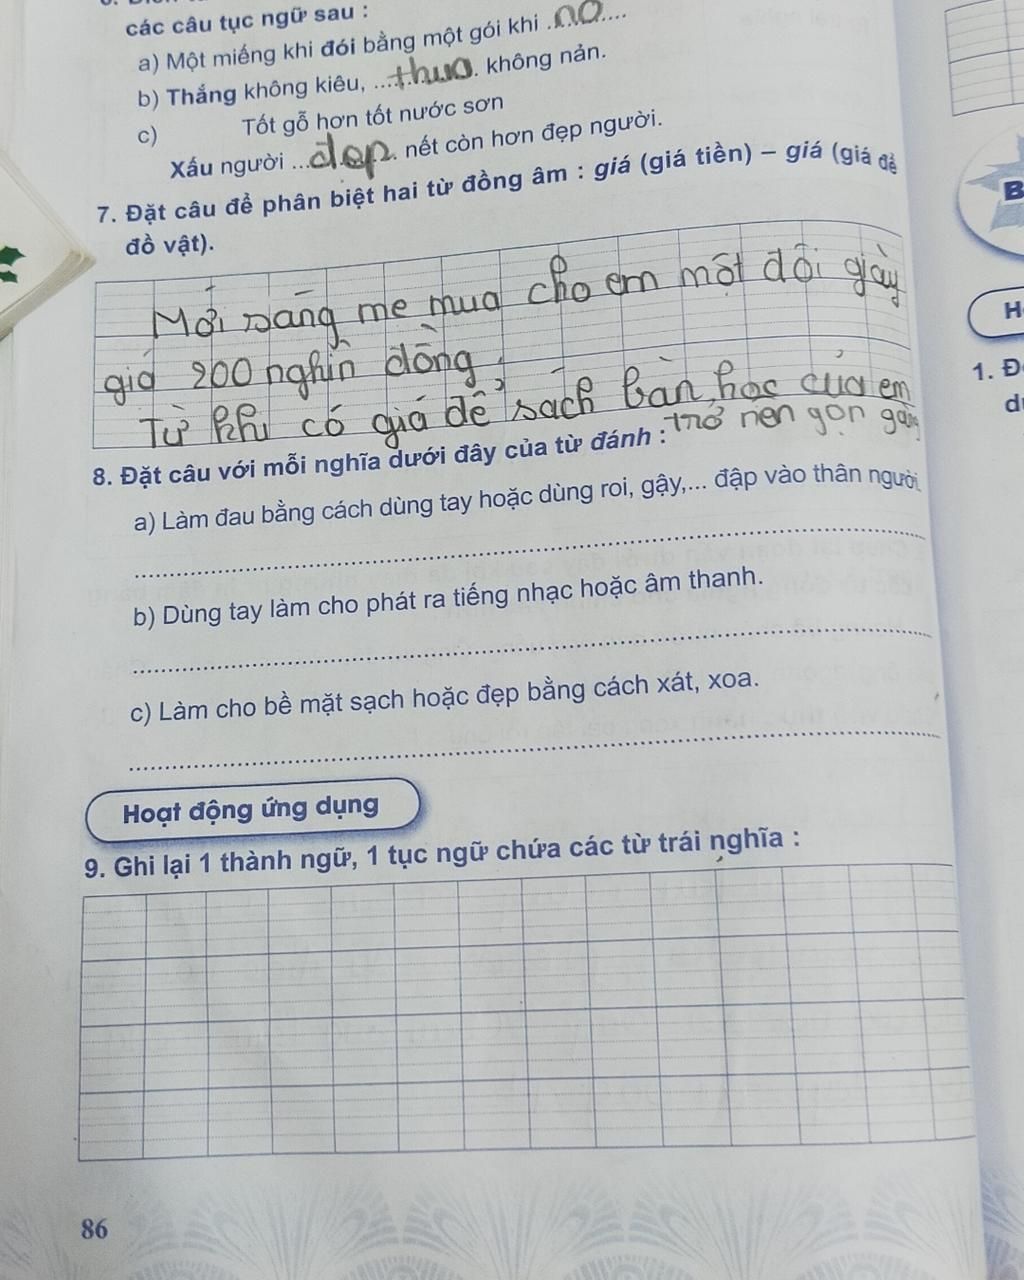 các câu tục ngữ sau :
a) Một miếng khi đói bằng một gói khi ..no....
b) Thắng không kiêu, ....thua. không nản.
c) Tốt gỗ hơn tốt nước sơn
Xấu người ...đẹp. nết còn hơn đẹp người.
7. Đặt câu để phân biệt hai từ đồng âm : giá (giá tiền) – giá (giá để
đồ vật).
Mới sáng mẹ mua cho em một đôi giày
giá 200 nghìn đồng.
Từ khi có giá để sách bàn học của em
trở nên gọn gàng
8. Đặt câu với mỗi nghĩa dưới đây của từ đánh :
a) Làm đau bằng cách dùng tay hoặc dùng roi, gậy,... đập vào thân người.
b) Dùng tay làm cho phát ra tiếng nhạc hoặc âm thanh.
c) Làm cho bề mặt sạch hoặc đẹp bằng cách xát, xoa.
Hoạt động ứng dụng
9. Ghi lại 1 thành ngữ, 1 tục ngữ chứa các từ trái nghĩa :
86
B
H
1. Đ